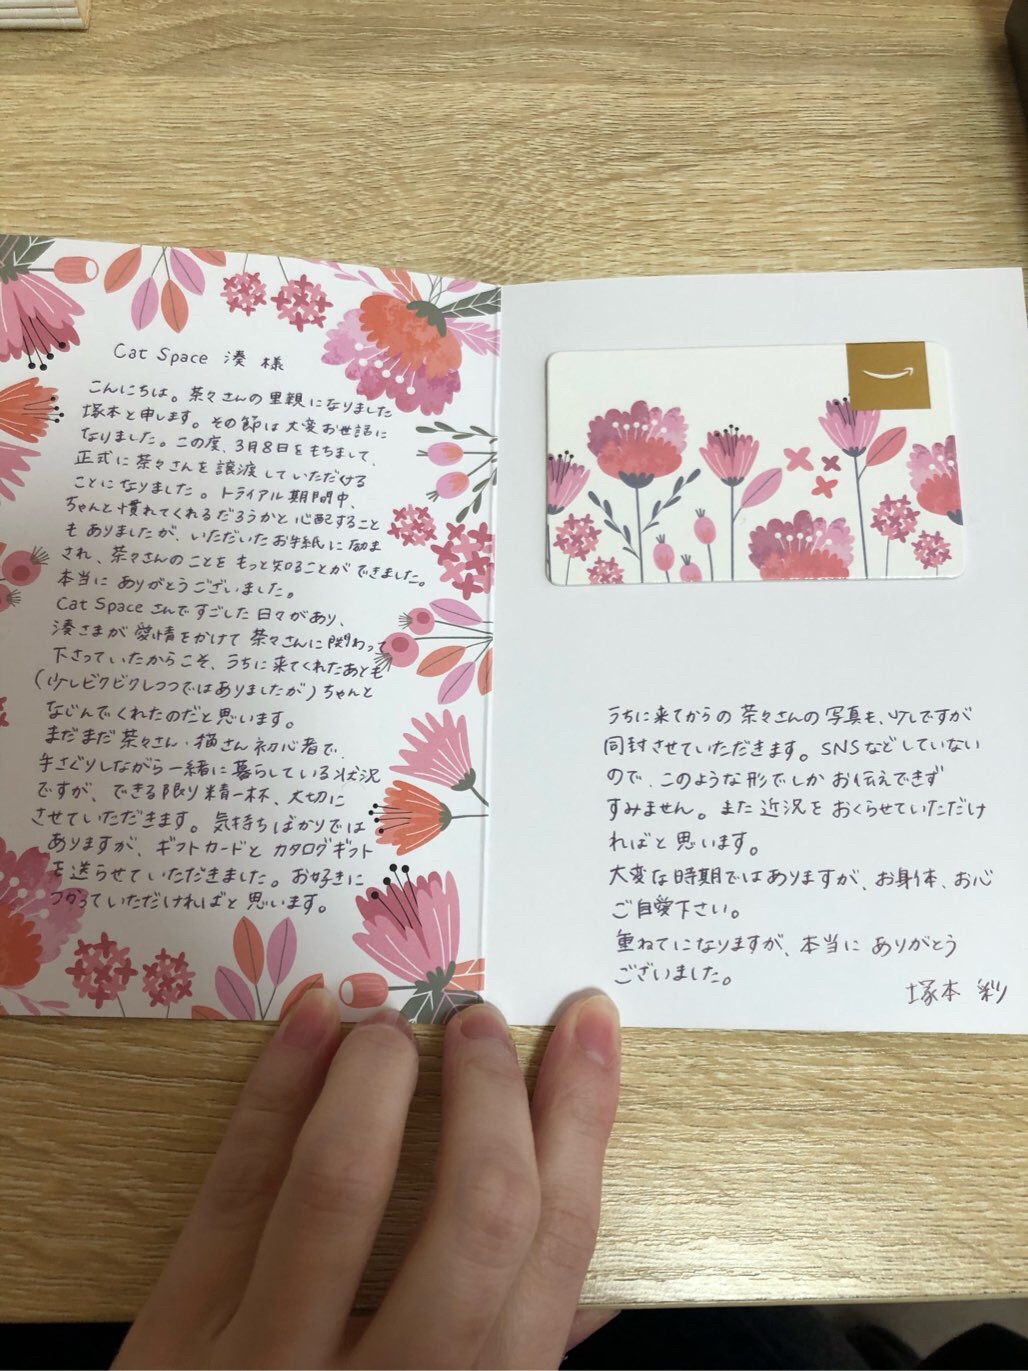 Cat Space 湊 様
こんにちは。茶々さんの里親になりました
塚本と申します。その節は大変お世話に
なりました。この度、3月8日をもちまして、
正式に茶々さんを譲渡していただける
ことになりました。トライアル期間中、
ちゃんと慣れてくれるだろうかと心配すること
もありましたが、いただいたお手紙に励ま
され、茶々さんのことをもっと知ることができました。
本当にありがとうございました。
Cat Spaceさんですごした日々があり、
湊さまが愛情をかけて茶々さんに関わって
下さっていたからこそ、うちに来てくれたあとも
(少しビクビクしつつではありましたが)ちゃんと
なじんでくれたのだと思います。
まだまだ茶々さん・猫さん初心者で、
手さぐりしながら一緒に暮らしている状況
ですが、できる限り精一杯、大切に
させていただきます。気持ちばかりでは
ありますが、ギフトカードとカタログギフト
を送らせていただきました。お好きに
つかっていただければと思います。
うちに来てからの茶々さんの写真も、少しですが
同封させていただきます。SNSなどしていない
ので、このような形でしかお伝えできず
すみません。また近況をおくらせていただけ
ればと思います。
大変な時期ではありますが、お身体、お心
ご自愛下さい。
重ねてになりますが、本当にありがとう
ございました。
塚本 彩